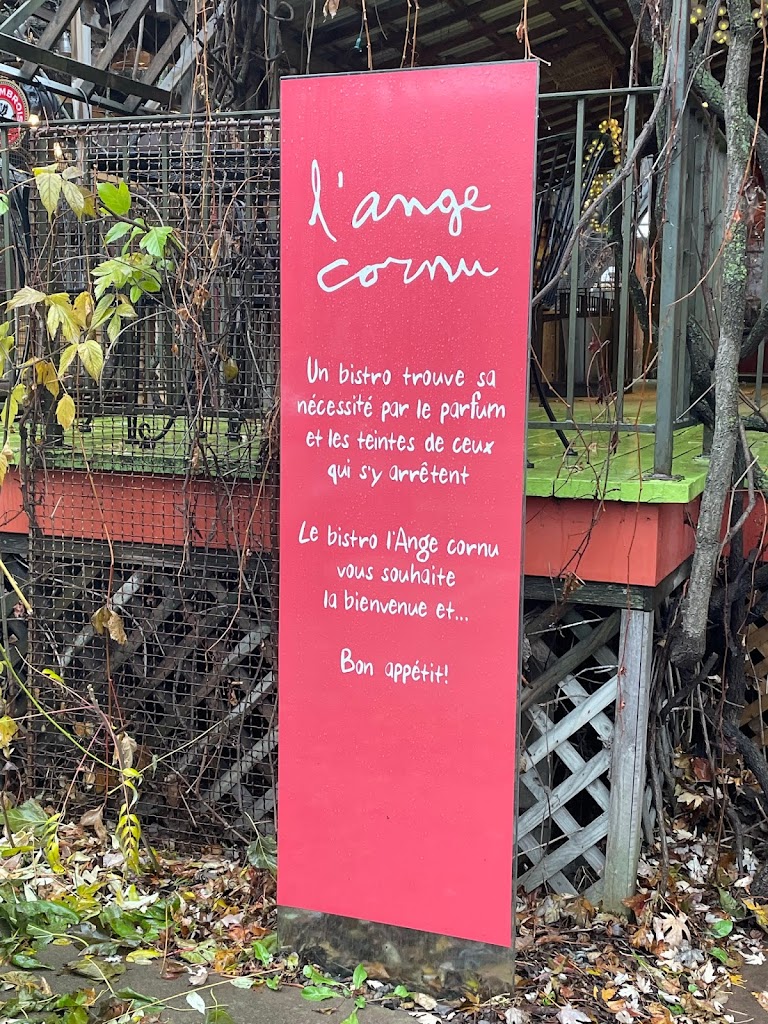 l'ange
cornu
Un bistro trouve sa
nécessité par le parfum
et les teintes de ceux
qui s'y arrêtent
Le bistro l'Ange cornu
vous souhaite
la bienvenue et...
Bon appétit!